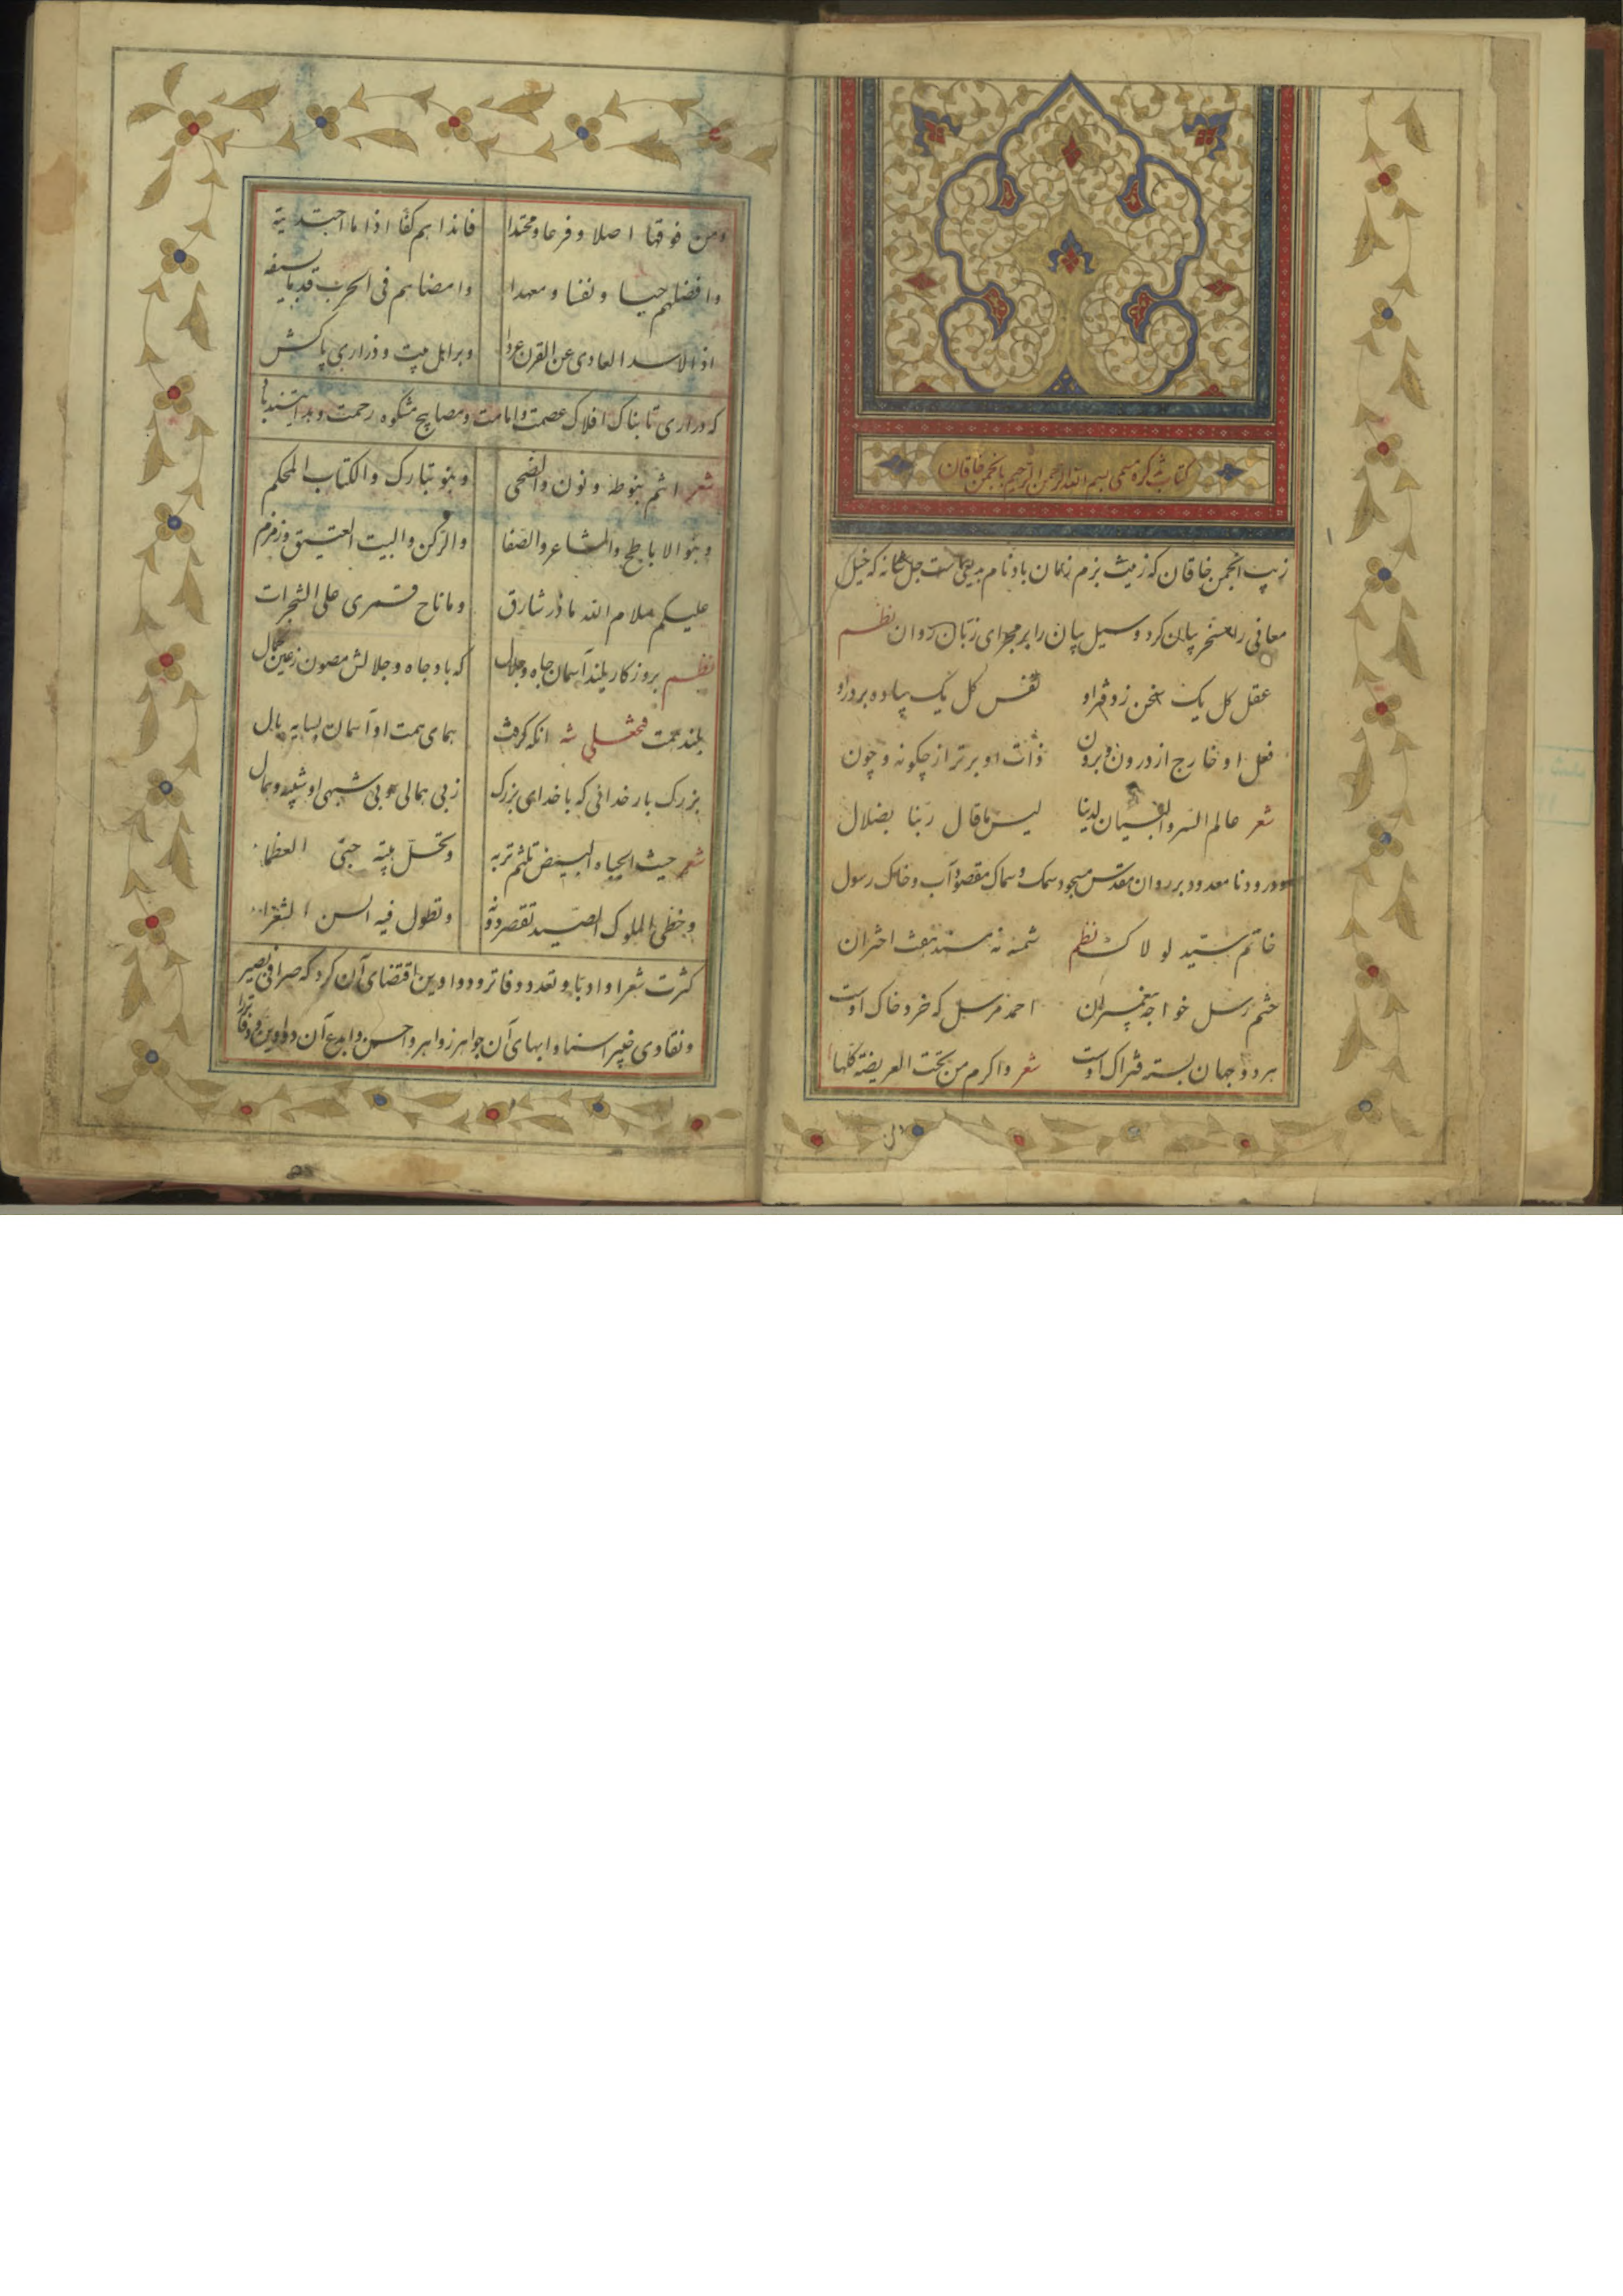 کتاب تذکره مسمی بسم الله الرحمن الرحیم بانجمن خاقان
زیب انجمن خاقان که زینت بزم زمان باد نام بدیعی است جل شانه که خیل
معانی را مسخر بیان کرد و سیل بیان را بر مجرای زبان روان نظم
عقل کل یک سخن ز دفتر او نفس کل یک پیاده بر در او
فعل او خارج از درون و برون ذات او برتر از چگونه و چون
شعر عالم السر والعیان لدینا لیس ما قال ربنا بضلال
و درود نامعدود بر روان مقدس مسجود سمک و سماک مقصود آب و خاک رسول
خاتم سید لولاک نظم شمسه نه مسند هفت اختران
ختم رسل خواجه پیغمبران احمد مرسل که خرد خاک اوست
هر دو جهان بسته فتراک اوست شعر واکرم من تحت العریضة کلها
۱
ومن فوقها اصلا و فرعا و محتدا فانداهم کفا اذا ما اجتدیته
وافضلهم حیا و نفسا و معهدا وامضاهم فی الحرب قدما بسیفه
اذ الاسد العادی عن القرن عردا و بر اهل بیت و ذراری پاکش
که دراری تابناک افلاک عصمت و امامت و مصابیح مشکوه رحمت و هدایتند
شعر انتم بنو طه و نون والضحی وبنو تبارک والکتاب المحکم
وبنو الاباطح والمشاعر والصفا والرکن والبیت العتیق وزمزم
علیکم سلام الله ما ذر شارق وما ناح قمری علی الشجرات
نظم بروزکار بلند آسمان جاه و جلال که باد جاه و جلالش مصون ز عین کمال
بلند همت فتحعلی شه انکه کرفت همای همت او آسمان بسایه بال
بزرک بار خدائی که با خدای بزرک ز بی همالی و بی شبهی او شبیه و همال
شعر حیث الجباه البیض تلثم تربه وتحل بیته حبی العظماء
وخطی الملوک الصید تقصر دونه وتطول فیه السن الشعراء
کثرت شعرا و ادبا و تعدد دفاتر و دواوین اقتضای آن کرد که صرافی بصیر
و نقادی خبیر اسنا و ابهای آن جواهر زواهر و احسن و ابدع آن دواوین و دفاتر را